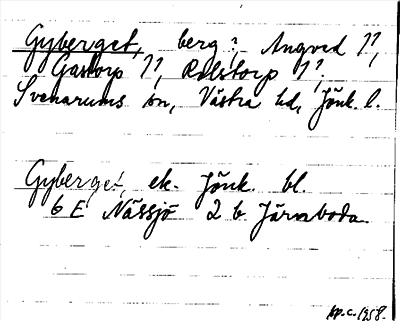 Gyberget, berg?, Angved 1?,
Gastorp 1?, Rolstorp 1?,
Svenarums sn, Västra hd, Jönk. l.
Gyberget, ek. Jönk. bl.
6 E Nässjö 2 b. Järnboda
1958.